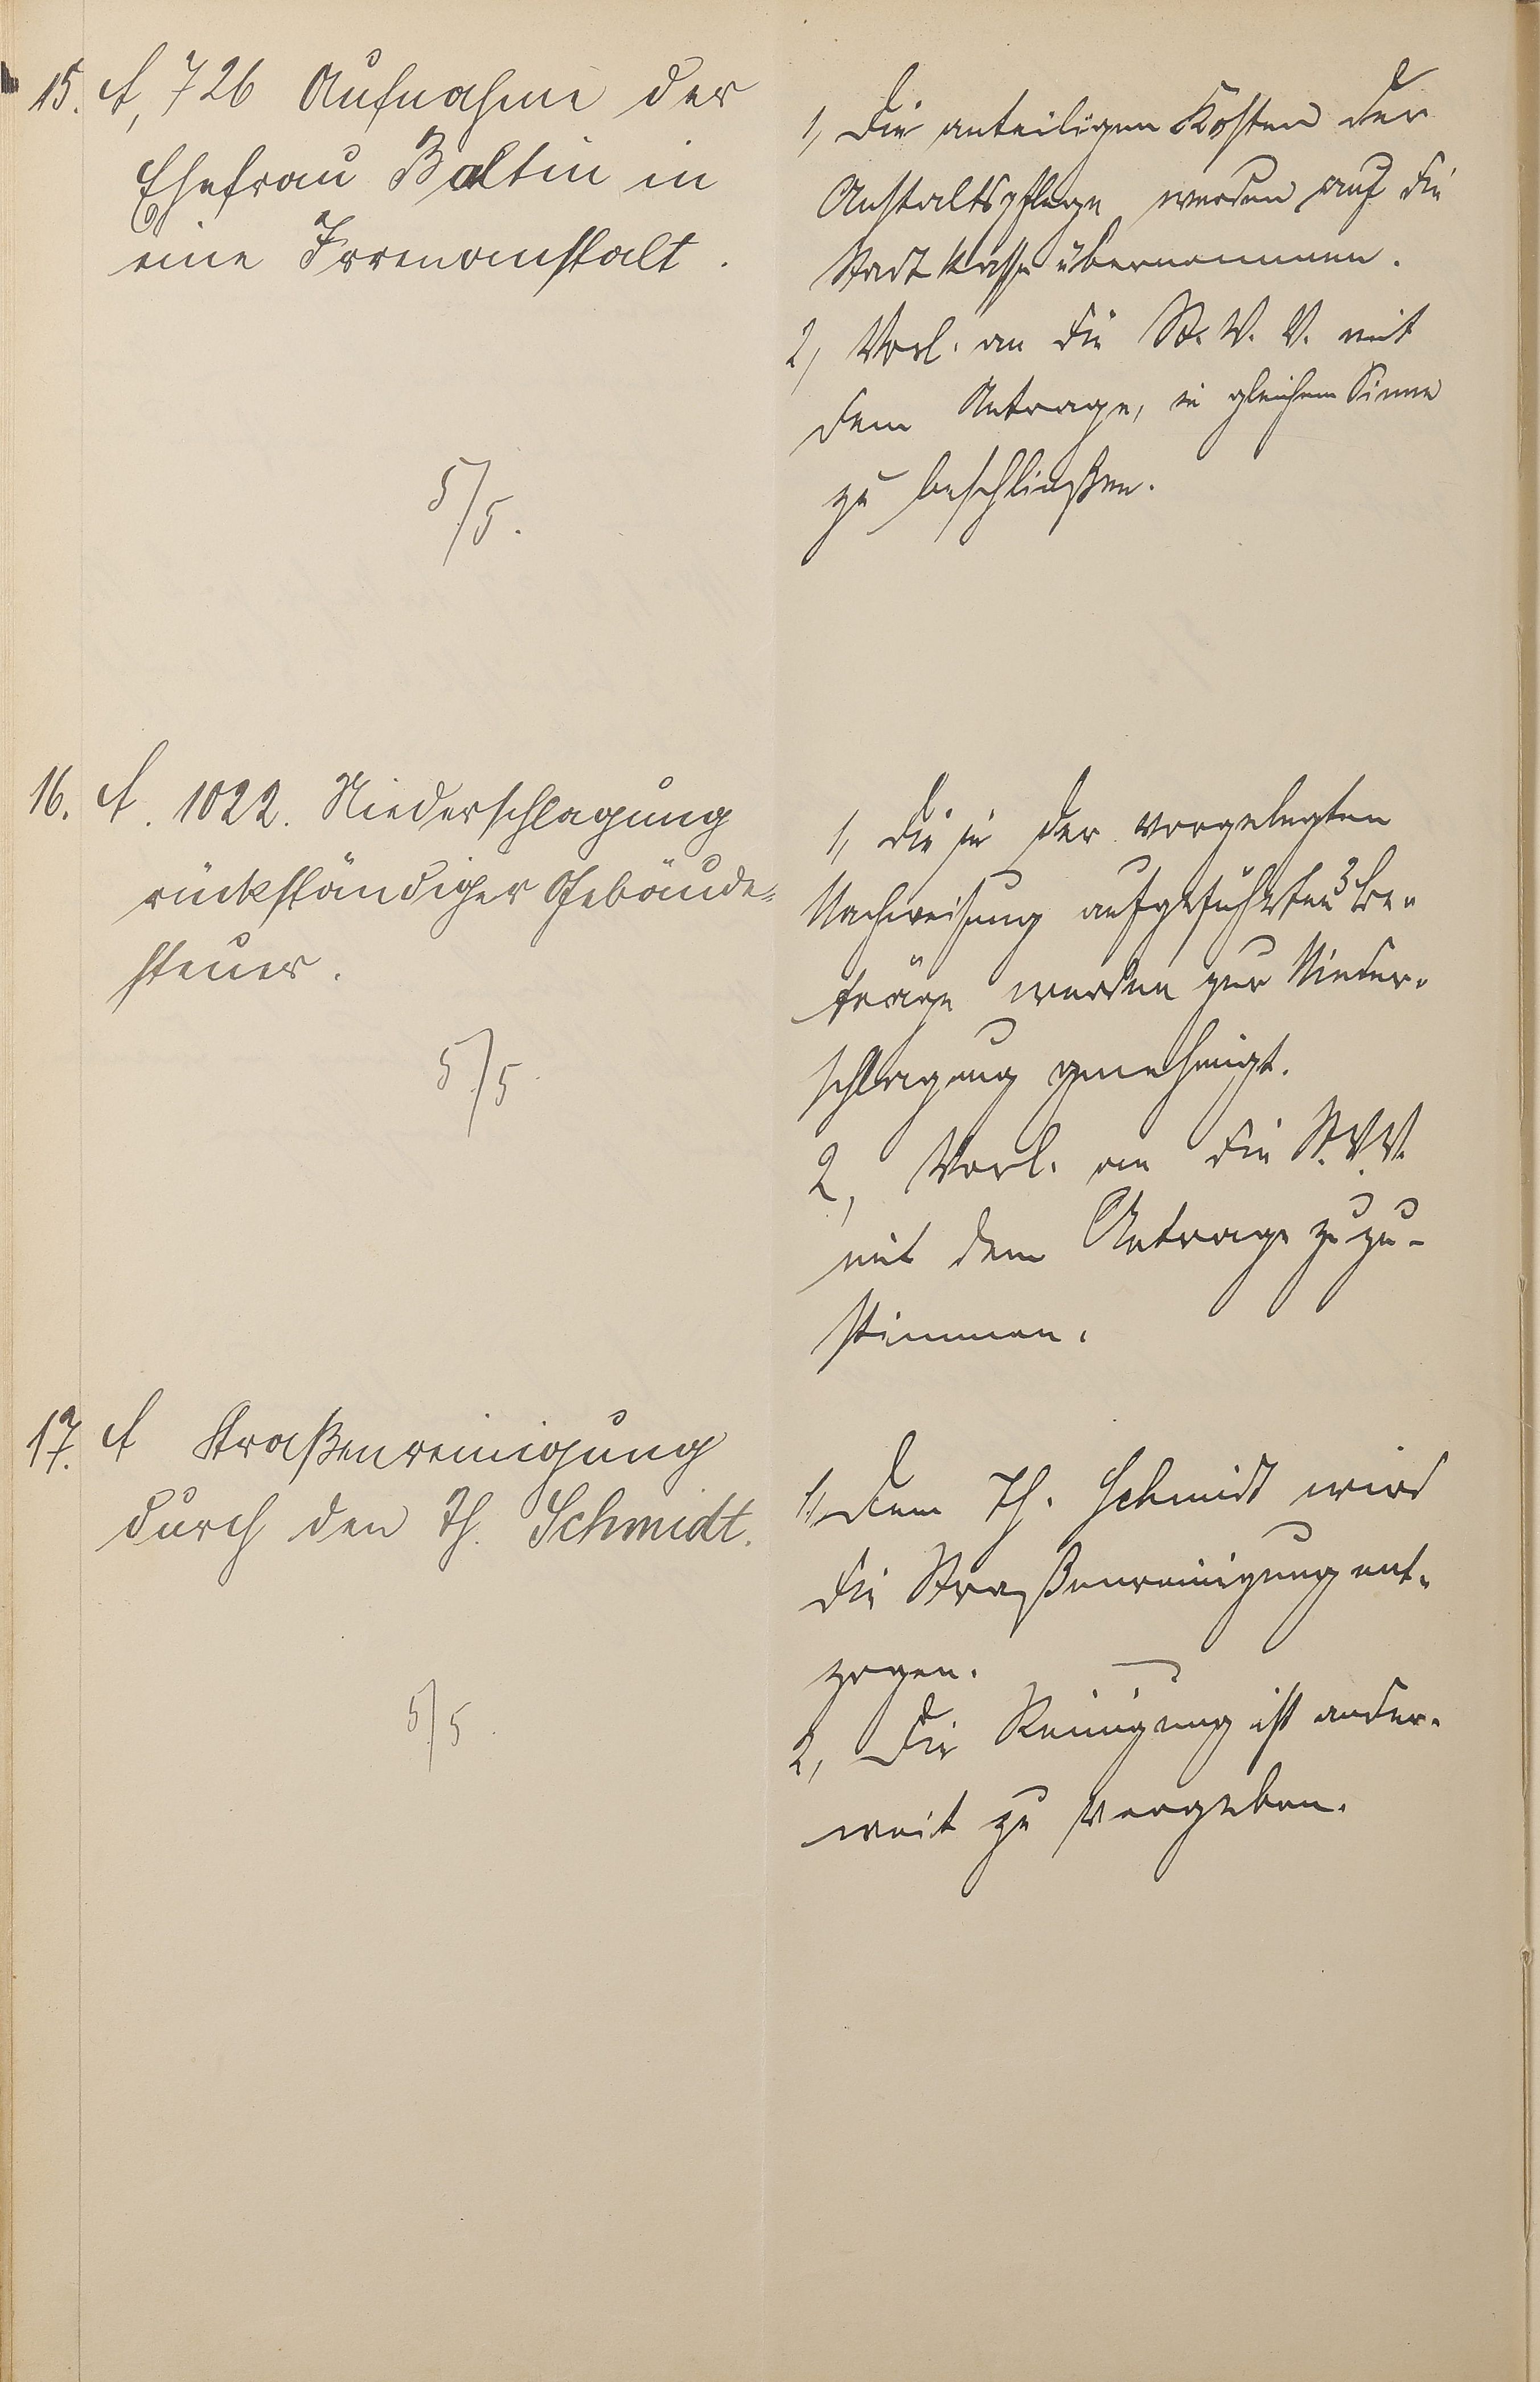 15. A, 726 Aufnahme der
Ehefrau Baltin in
eine Irrenanstalt.
5/5.
1, Die anteiligen Kosten der
Anstaltspflege werden auf die
Stadtkasse übernommen.
2, Vorl. an die St. V. V. mit
dem Antrage, in gleichem Sinne
zu beschließen.
16. A. 1022. Niederschlagung
rückständiger Gebäude-
steuer.
5/5.
1, Die in der vorgelegten
Nachweisung aufgeführten 3 Be-
träge werden zur Nieder-
schlagung genehmigt.
2, Vorl. an die St. V. V.
mit dem Antrage zuzu-
stimmen.
17. A Straßenreinigung
durch den Th. Schmidt.
5/5.
1, Dem Th. Schmidt wird
die Straßenreinigung ent-
zogen.
2, Die Reinigung ist ander-
weit zu vergeben.